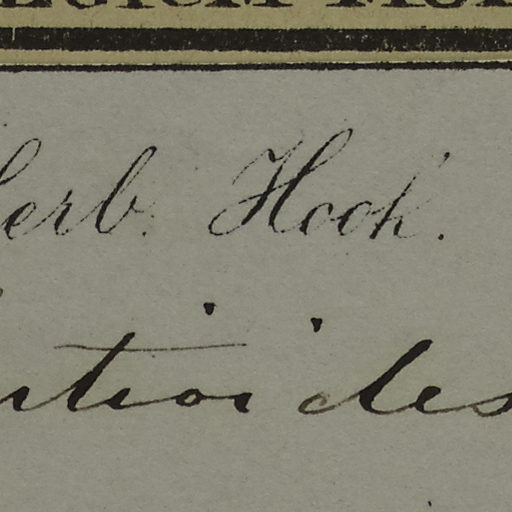 Herb. Hook.
ntioides